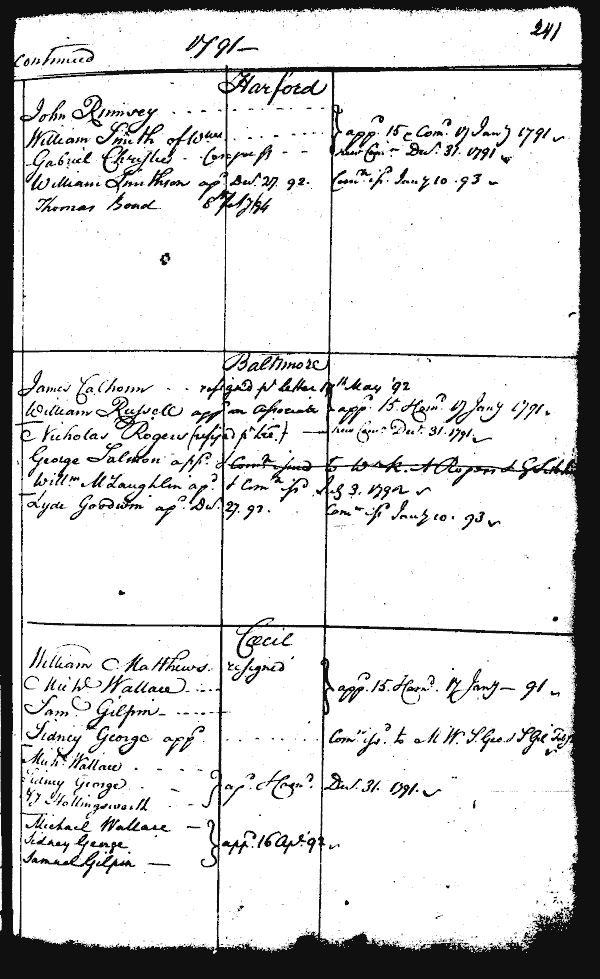 241
Continued 1791 —
Harford
John Rumsey
William Smith of Wm } app. 15 & Com. 17 Jany 1791
Gabriel Christie Congress new Com. Dec. 31. 1791
William Smithson ap. Dec. 27. 92. Com. iss. Jany 10. 93
Thomas Bond
Baltimore
James Calhoun resigned pr letter May '92
William Russell app an Associate } app. 15. Com. 17 Jany 1791.
Nicholas Rogers (resign'd pr } — new Com. Dec. 31. 1791
George Salmon app. Com. issued to W. R. N Rogers & G
Willm McLaughlin ap. & Com. iss 3. 1792
Lyde Goodwin ap. Dec. 27. 92. Com. iss Jany 10. 93
Cecil
William Matthews. resigned
Michl Wallace } app. 15. Com. 17 Jany — 91
Saml Gilpin —
Sidney George app. Com. iss. to M W. S Geo. & S Gil
Michl Wallace
Sidney George } ap. & Com. Dec. 31. 1791.
Hollingsworth
Michael Wallace —
Sidney George } app. 16 Apl. 92
Samuel Gilpin —